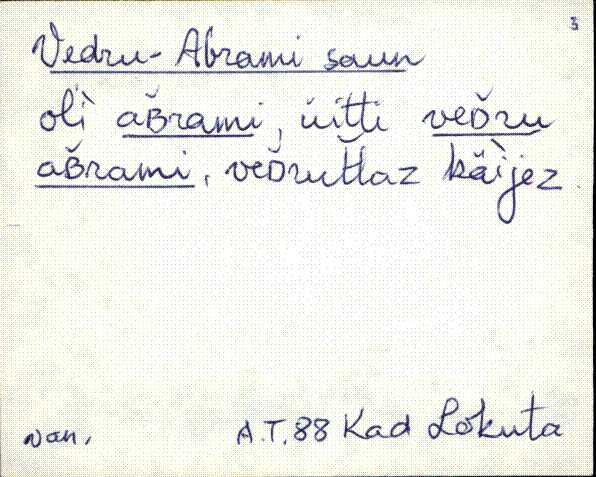 3
Vedru-Abrami saun
oĺì aʙ̆rami, üìtti veᴅ̆ru
aʙ̆rami, veᴅ̆rut̆taz käìjez.
van. A.T. 88 Kad Lokuta